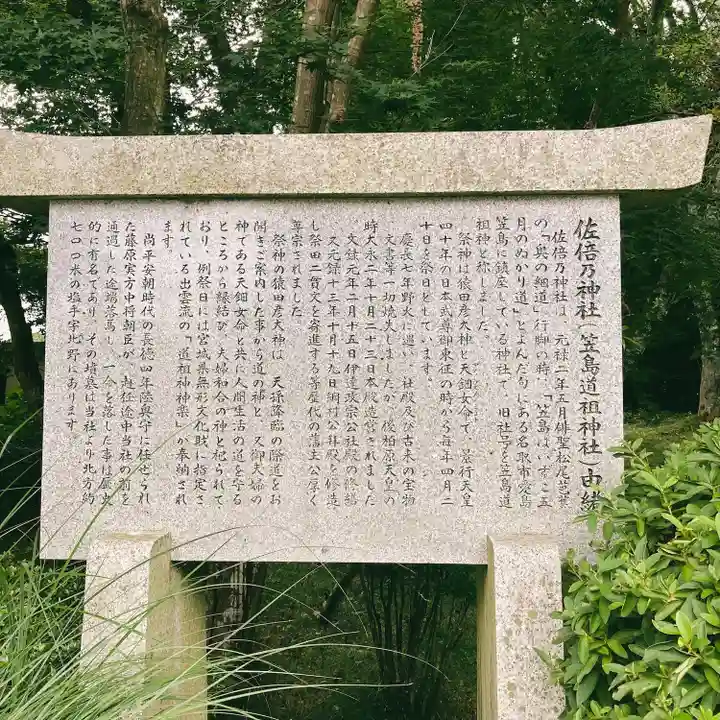 佐倍乃神社(笠島道祖神社)由緒
佐倍乃神社は、元禄二年五月俳聖松尾芭蕉
の「奥の細道」行脚の時、「笠島はいずこ五
月のぬかり道」とよんだ句にある名取市愛島
笠島に鎮座している神社で、旧社号を笠島道
祖神と称しました。
祭神は猿田彦大神と天鈿女命で、景行天皇
四十年の日本武尊御東征の時から毎年四月二
十日を祭日としています。
慶長七年野火に遇い、社殿及び古来の宝物
文書等一切焼失しましたが、後柏原天皇の
時大永二年十月二十三日本殿造営されました
文録元年二月十五日伊達政宗公社殿の修繕
又元録十三年十月十九日綱村公拝殿を修造
し祭田二貫文を寄進する等歴代の藩主公厚く
尊崇されました
祭神の猿田彦大神は、天孫降臨の際道をお
開きご案内した事から道の神と、又御夫婦の
神である天鈿女命と共に人間生活の道を守る
ところから縁結び、夫婦和合の神と祀られて
おり、例祭日には宮城県無形文化財に指定さ
れている出雲流の「道祖神神楽」が奉納され
ます。
尚平安朝時代の長徳四年陸奥守に任ぜられ
た藤原実方中将朝臣が、赴任途中当社の前を
通過した途端落馬し、一命を落した事は歴史
的に有名であり、その墳墓は当社より北方約
七〇〇米の塩手字北野にあります。